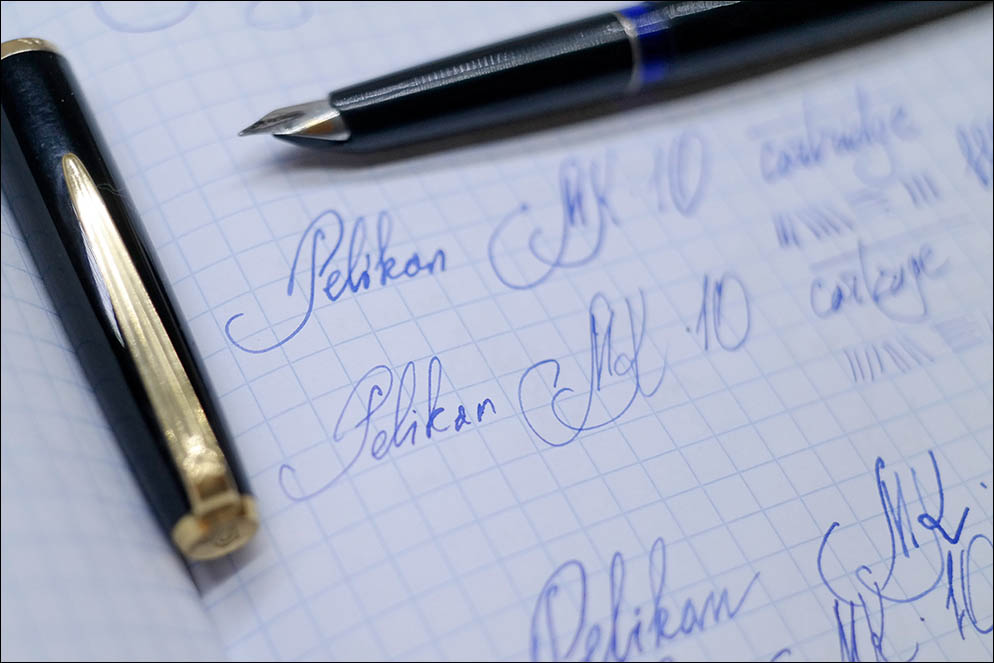 Pelikan MK 10 cartridge
Pelikan MK .10 cartrige
Pelikan MK.
MK. 10